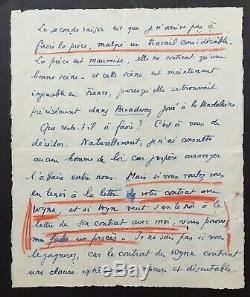 La seconde raison est que je n'arrive pas à
faire la pièce, malgré un travail considérable.
La pièce est mauvaise, elle ne contient qu'une
bonne scène - et cette scène est maintenant
injouable en France, parce qu'elle se trouvait
précisément dans Broadway joué à la Madeleine
Que reste-t-il à faire? C'est à vous de
décider. Naturellement, je n'ai consulté
aucun homme de loi, car j'espère arranger
l'affaire entre nous. Mais si vous voulez vous
en tenir à la lettre de votre contrat avec
Wynn, et si Wynn veut s'en tenir à la
lettre de son contrat avec moi, vous pouvez
me faire un procès. Je ne sais pas si vous
le gagnerez, car le contrat de Wynn contient
une clause et discutable.